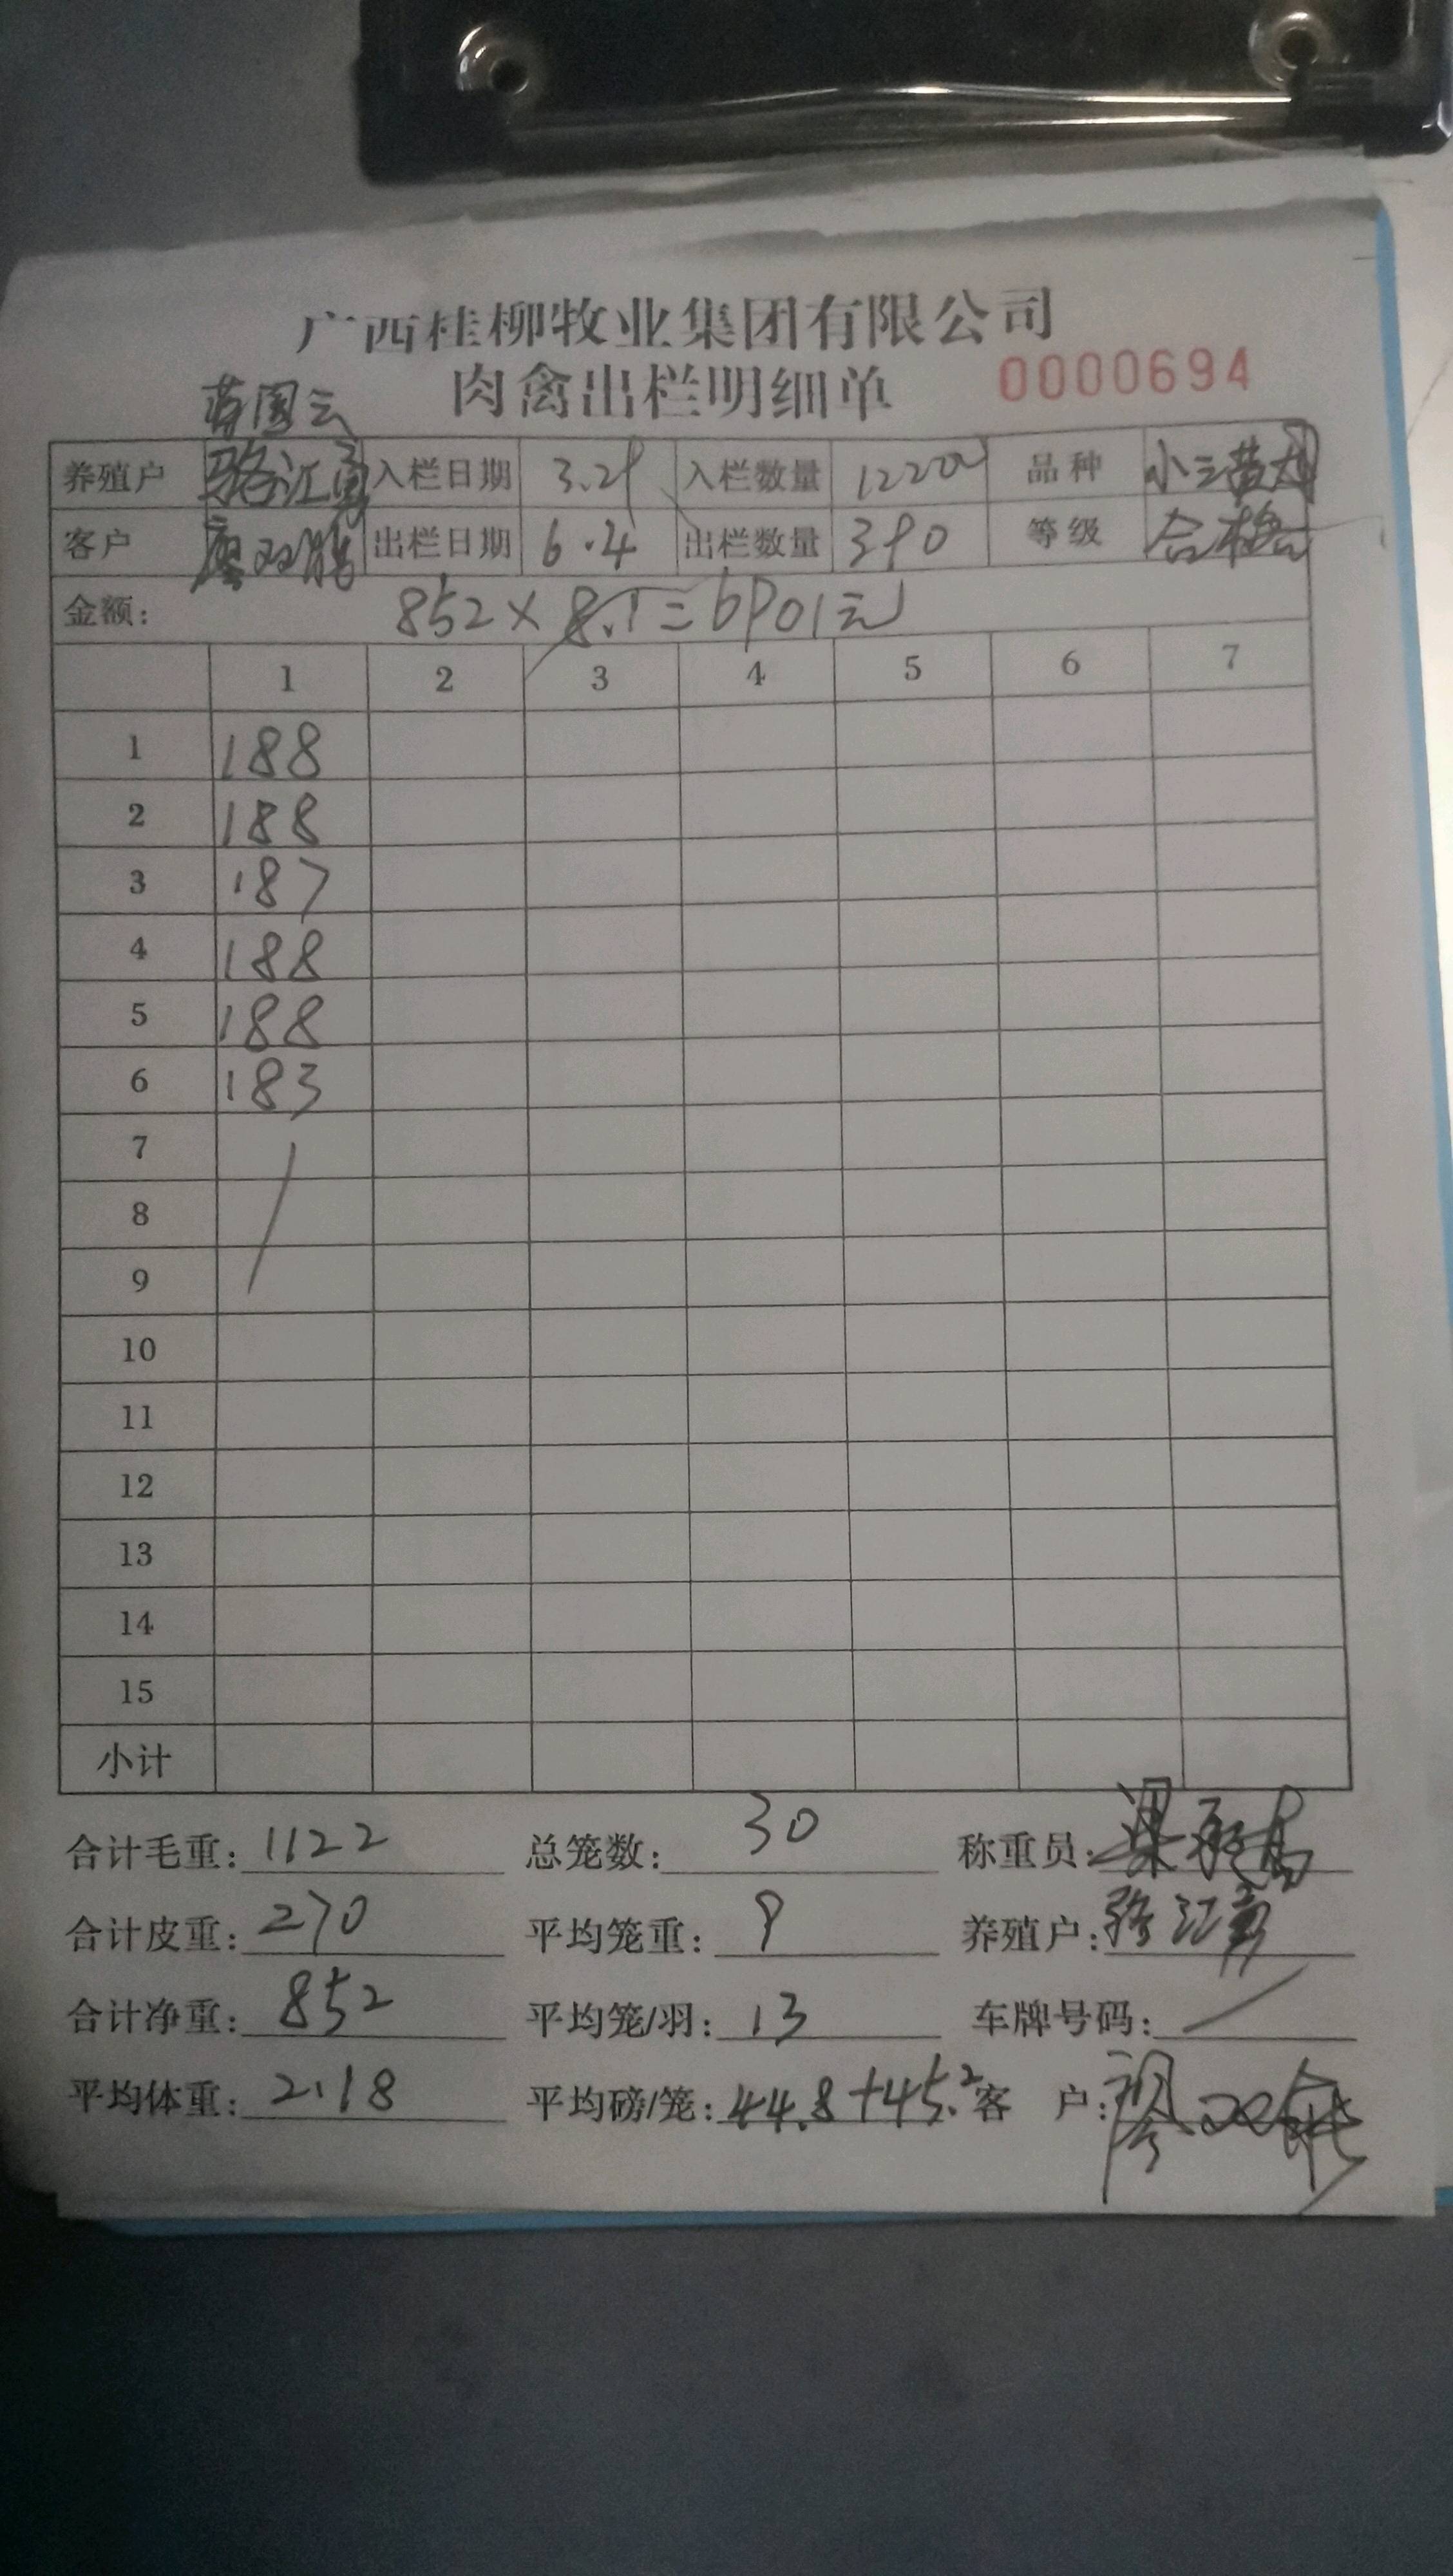 广西桂柳牧业集团有限公司
肉禽出栏明细单 0000694
蒋国云
养殖户 骆江勇 入栏日期 3.29 入栏数量 12200 品种 小三黄
客户 廖双 出栏日期 6.4 出栏数量 390 等级 合格
金额: 852×8.1=6901元
1 2 3 4 5 6 7
1 188
2 188
3 187
4 188
5 188
6 183
7
8
9
10
11
12
13
14
15
小计
合计毛重: 1122 总笼数: 30 称重员:
合计皮重: 270 平均笼重: 9 养殖户: 骆江勇
合计净重: 852 平均笼/羽: 13 车牌号码:
平均体重: 2.18 平均磅/笼: 44.8+45.2 客 户: 廖双